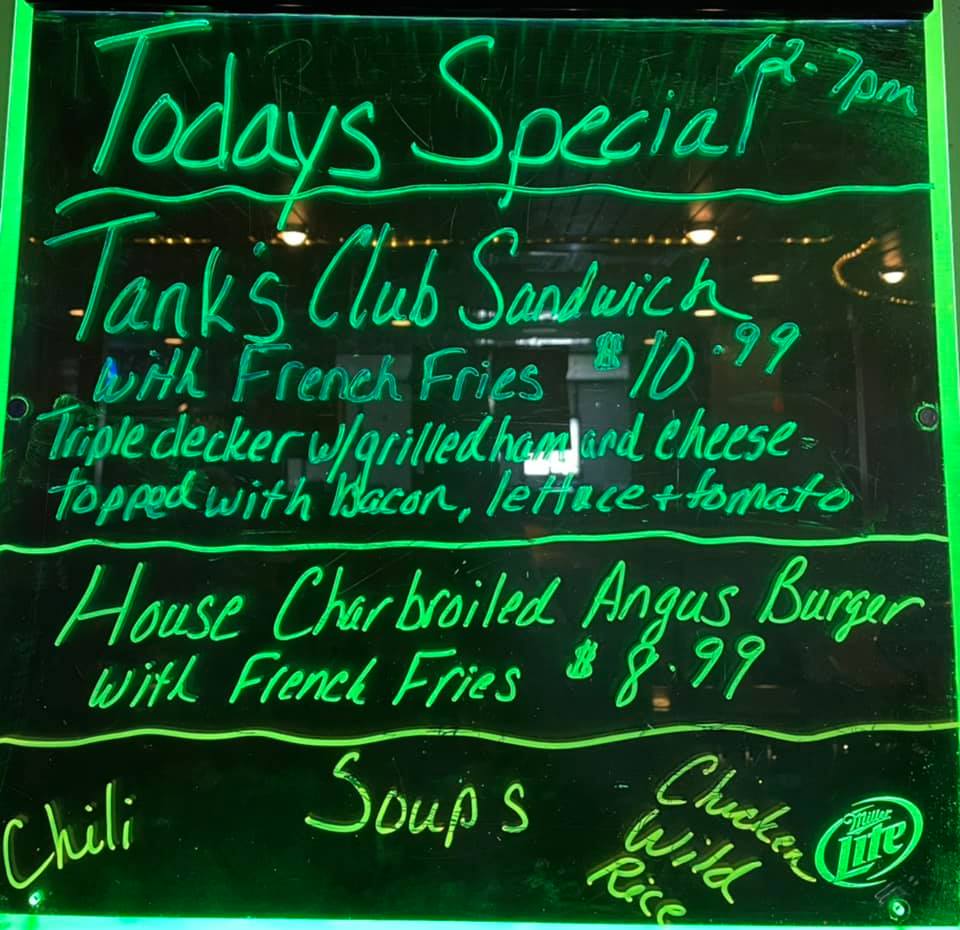 Todays Special 12-7pm
Tank's Club Sandwich
with French Fries $10.99
Triple decker w/grilled ham and cheese
topped with bacon, lettuce + tomato
House Charbroiled Angus Burger
with French Fries $8.99
Soups
Chili
Chicken
Wild
Rice
Miller
Lite